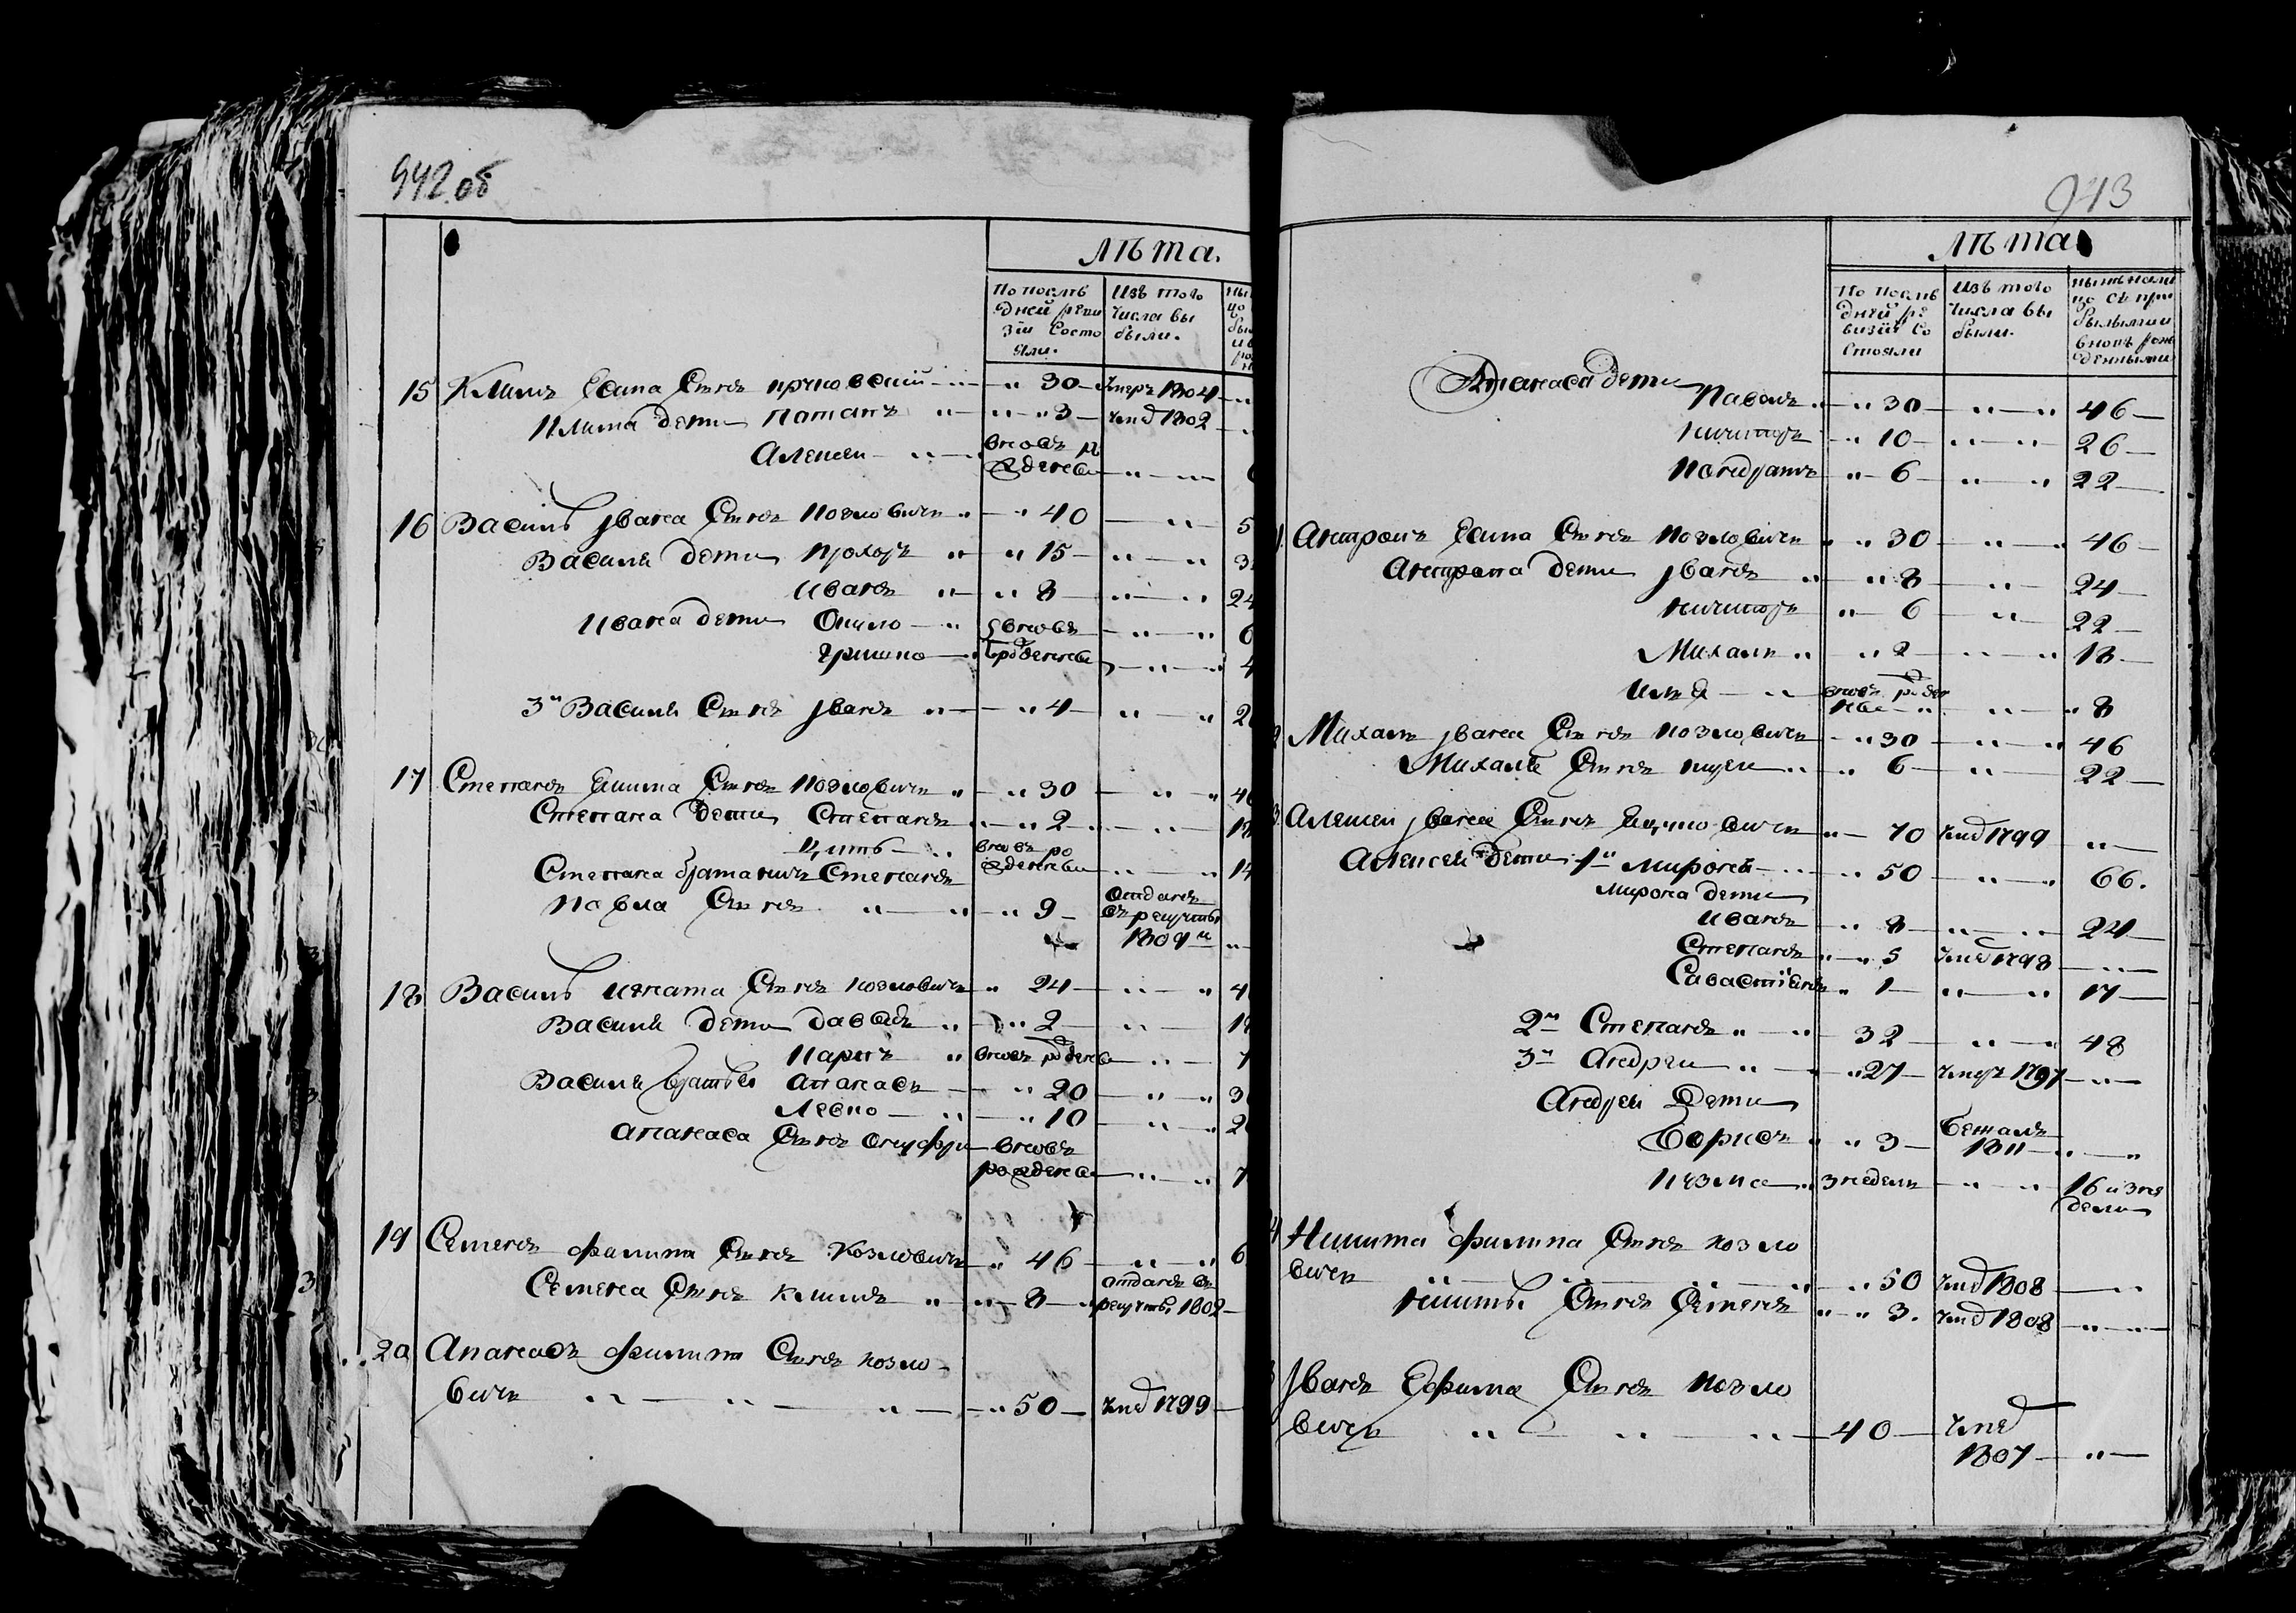 942 об
Лѣта.
По послѣ
дней реви
зіи Состо
яли.
Изъ того
числа вы
были.
15 Климъ Есипа Сынъ
30 Умеръ 1804
Клима дети Потапъ 3 Умер 1802
Алексеи вновь
рожденъ
16 Василь Ивана Сынъ Козловичъ 40
Василя дети Прохоръ 15
Иванъ 8 24
Ивана дети вновь
Гришко рожденны
3й Василя Сынъ Иванъ 4
17 Степанъ Сынъ Козловичъ 30
Степана дети Степанъ 2
вновь ро
жденны
Степана братаничъ Степанъ
Павла Сынъ 9 Отданъ
въ рекруты
1804
18 Василь Игната Сынъ Козловичъ 24
Василя дети Давыдъ 2
Карпъ вновь рожденны
Василя братья Апанасъ 20
Левко 10
Апанаса Сынъ Онуфри вновь
рожденны
19 Семенъ Филипа Сынъ Козловичъ 46
Семена Сынъ Климъ 8 Отданъ въ
рекруты 1802
20 Апанасъ Филипа Сынъ Козло
вичъ 50 Умер 1799
943
Лѣта
По послѣ
дней ре
визіи со
стояли
Изъ того
числа вы
были.
Нынѣ нали
цо съ при
былыми и
вновь рож
денными
Апанаса дети
Павелъ 30 46
Кичипоръ 10 26
Кондратъ 6 22
Антронъ Есипа Сынъ Козловичъ 30 46
Антрона дети Иванъ 8 24
Ничипоръ 6 22
Михаля 2 18
Илья вновь рожден
8
Михаля Ивана Сынъ Козловичъ 30 46
Михаля Сынъ 6 22
Алексеи Ивана Сынъ 70 Умер 1799
Алексея дети 1й Миронъ 50 66.
Мирона дети
Иванъ 8 24
Степанъ 5 Умер 1798
Савастіянъ 1 17
2й Степанъ 32 48
3й Андреи 27 Умеръ 1797
Андрея Дети
Борисъ 3 Бежалъ
1811
Кузма 3 недели 16 и 3 не
дели
Никита Филипа Сынъ Козло
вичъ 50 Умер 1808
Никиты Сынъ Семенъ 3. Умер 1808
Иванъ Ефима Сынъ Козло
вичъ 40 Умер
1807